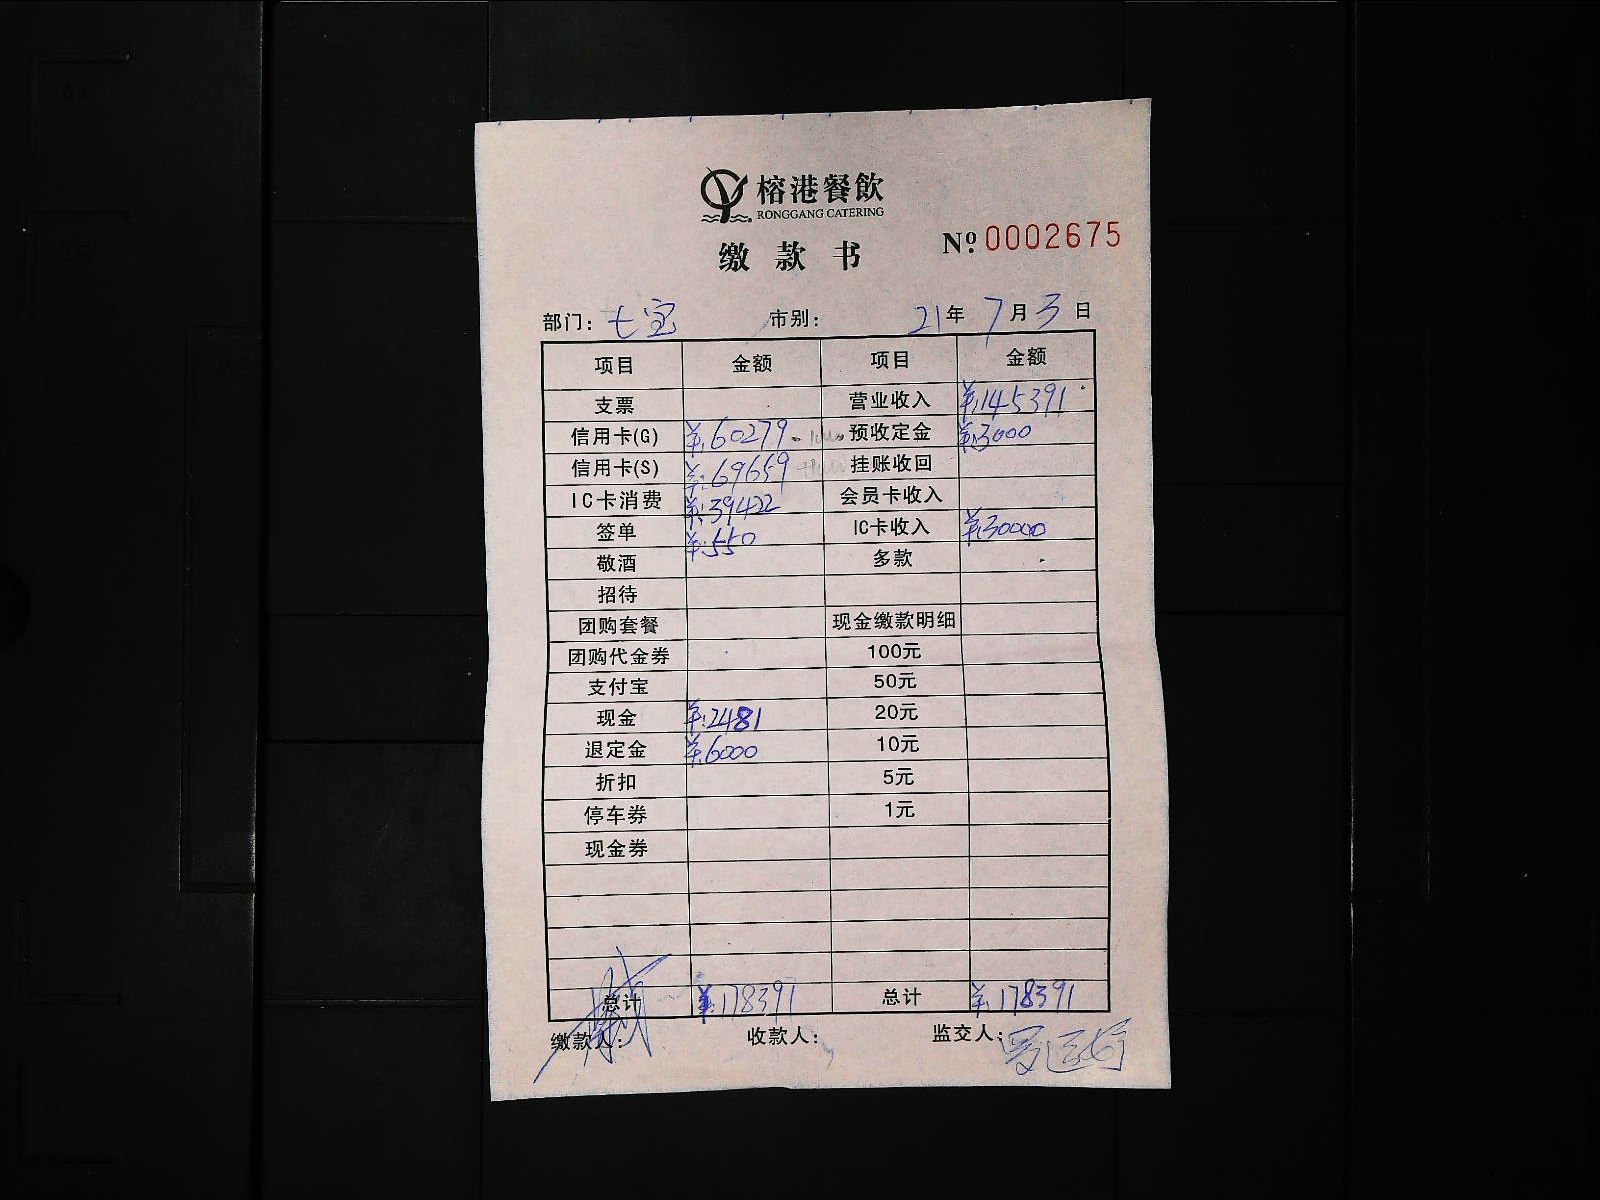 榕港餐飲
RONGGANG CATERING
缴款书
Nº.0002675
部门: 七宝 市别: 21年 7月 3日
项目 金额 项目 金额
支票 营业收入 ¥:145391
信用卡(G) ¥:60279 预收定金 ¥:3000
信用卡(S) ¥:69659 挂账收回
IC卡消费 ¥:39422 会员卡收入
签单 ¥:550 IC卡收入 ¥:30000
敬酒 多款
招待
团购套餐 现金缴款明细
团购代金券 100元
支付宝 50元
现金 ¥:2481 20元
退定金 ¥:6000 10元
折扣 5元
停车券 1元
现金券
总计 ¥:178391 总计 ¥:178391
缴款人: 收款人: 监交人: